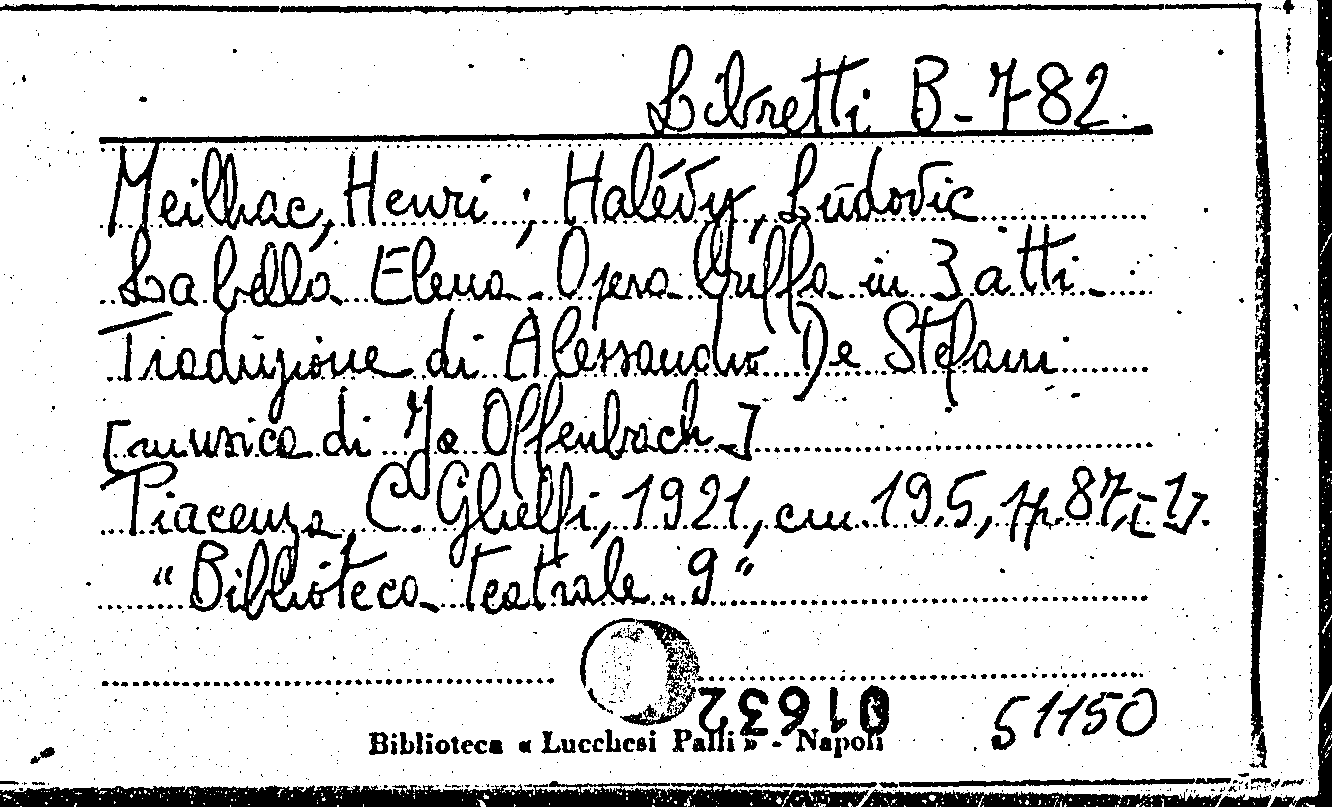 Libretti B-782.
Meilhac, Henri ; Halévy, Ludovic
La bella Elena. Opera buffa in 3 atti.
Traduzione di Alessandro De Stefani
[musica di Ja Offenbach]
Piacenza, C. Ghelfi, 1921, cm. 19.5, pp. 87, [1].
"Biblioteca teatrale. 9"
01632
51150
Biblioteca « Lucchesi Palli » - Napoli